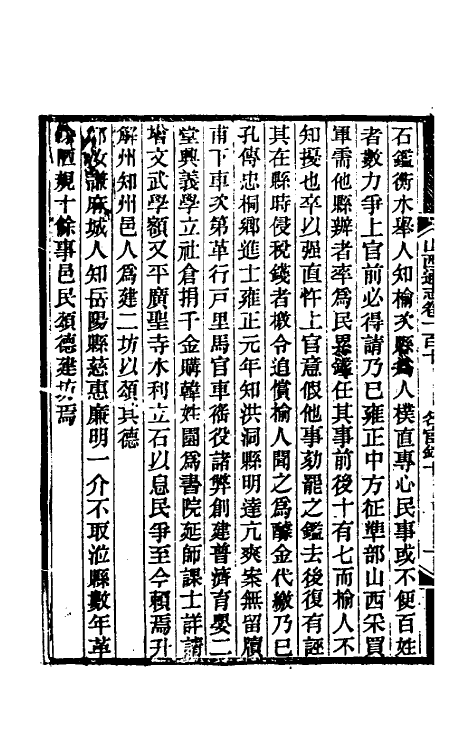 石鑑衡水舉人知榆次縣爲人樸直專心民事或不便百姓
者數力爭上官前必得請乃已雍正中方征準部山西采買
軍需他縣辦者率爲民累鑑任其事前後十有七而榆人不
知擾也卒以强直忤上官意假他事劾罷之鑑去後復有誣
其在縣時侵稅錢者檄令追償榆人聞之爲醵金代繳乃已
孔傳忠桐鄉進士雍正元年知洪洞縣明達亢爽案無留牘
甫下車次第革行戸里馬官車衙役諸弊創建普濟育嬰二
堂興義學立社倉捐千金購韓姓園爲書院延師課士詳請
增文武學額又平廣聖寺水利立石以息民爭至今賴焉升
解州知州邑人爲建二坊以頌其德
邱汝謙麻城人知岳陽縣慈惠廉明一介不取涖縣數年革
陋規十餘事邑民頌德建坊焉
山西通志卷一百十 名宦錄十